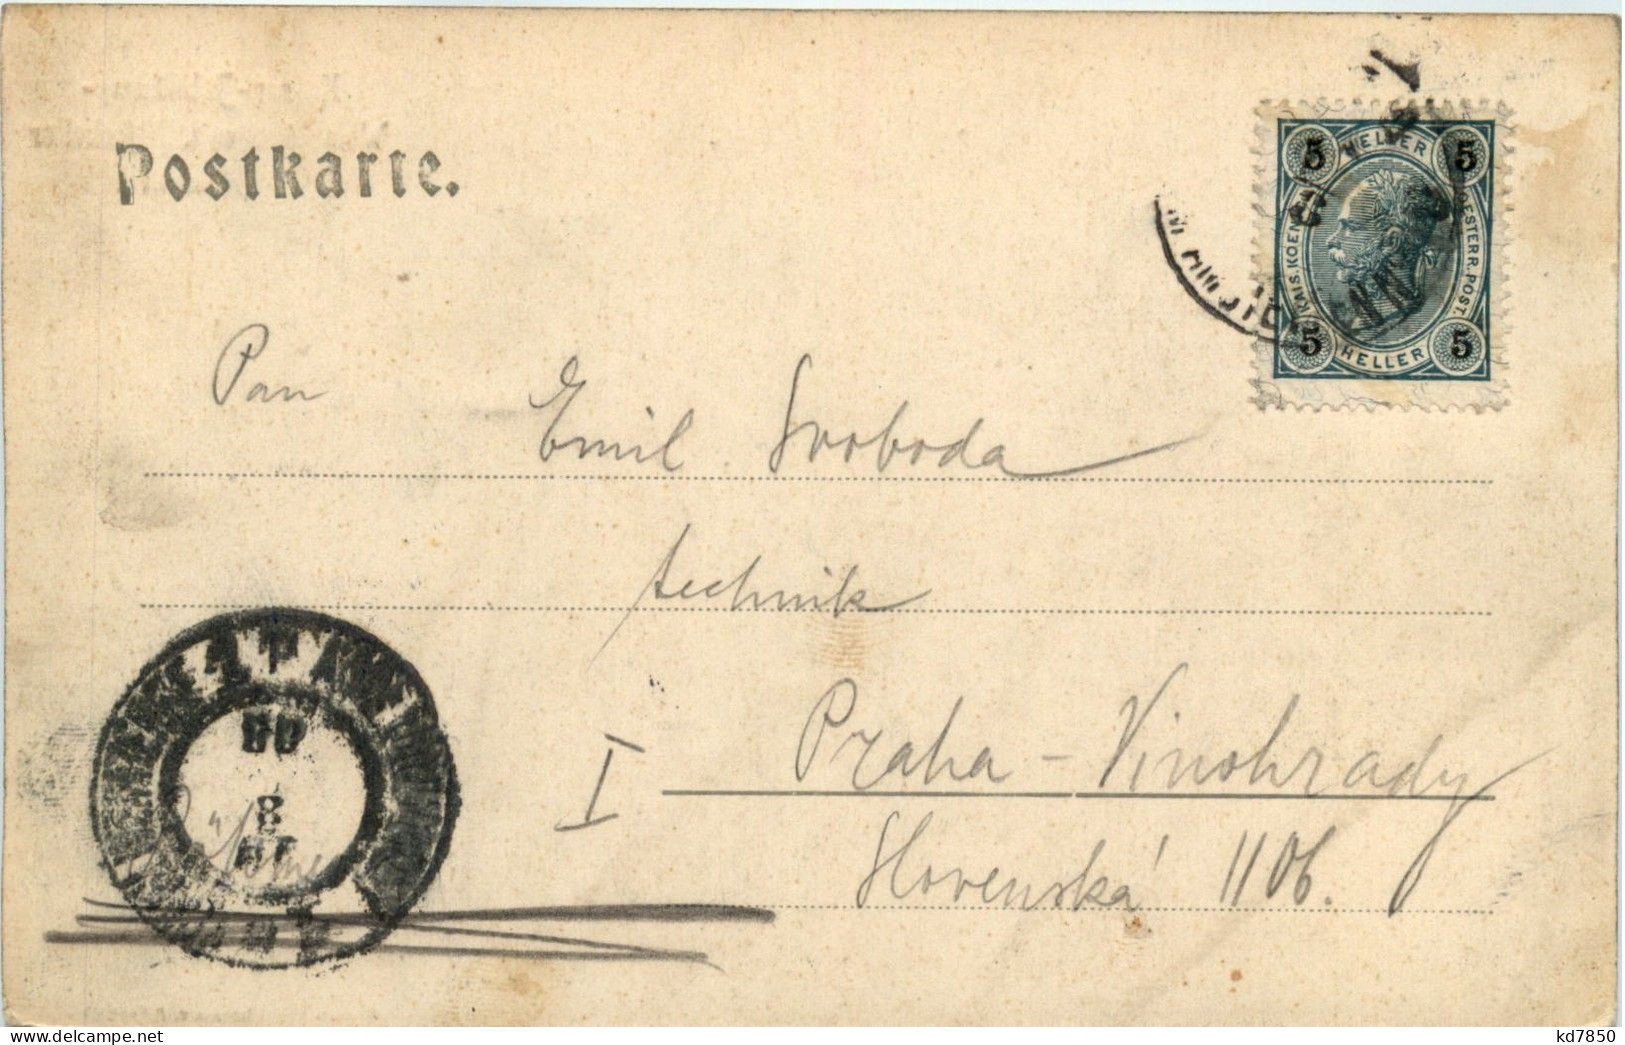 Postkarte.
5 HELLER 5
KAIS. KOEN. OESTERR. POST.
5 HELLER 5
Pan Emil Svoboda
technik
I Praha - Vinohrady
Slovenská 1106.
8
kd7850